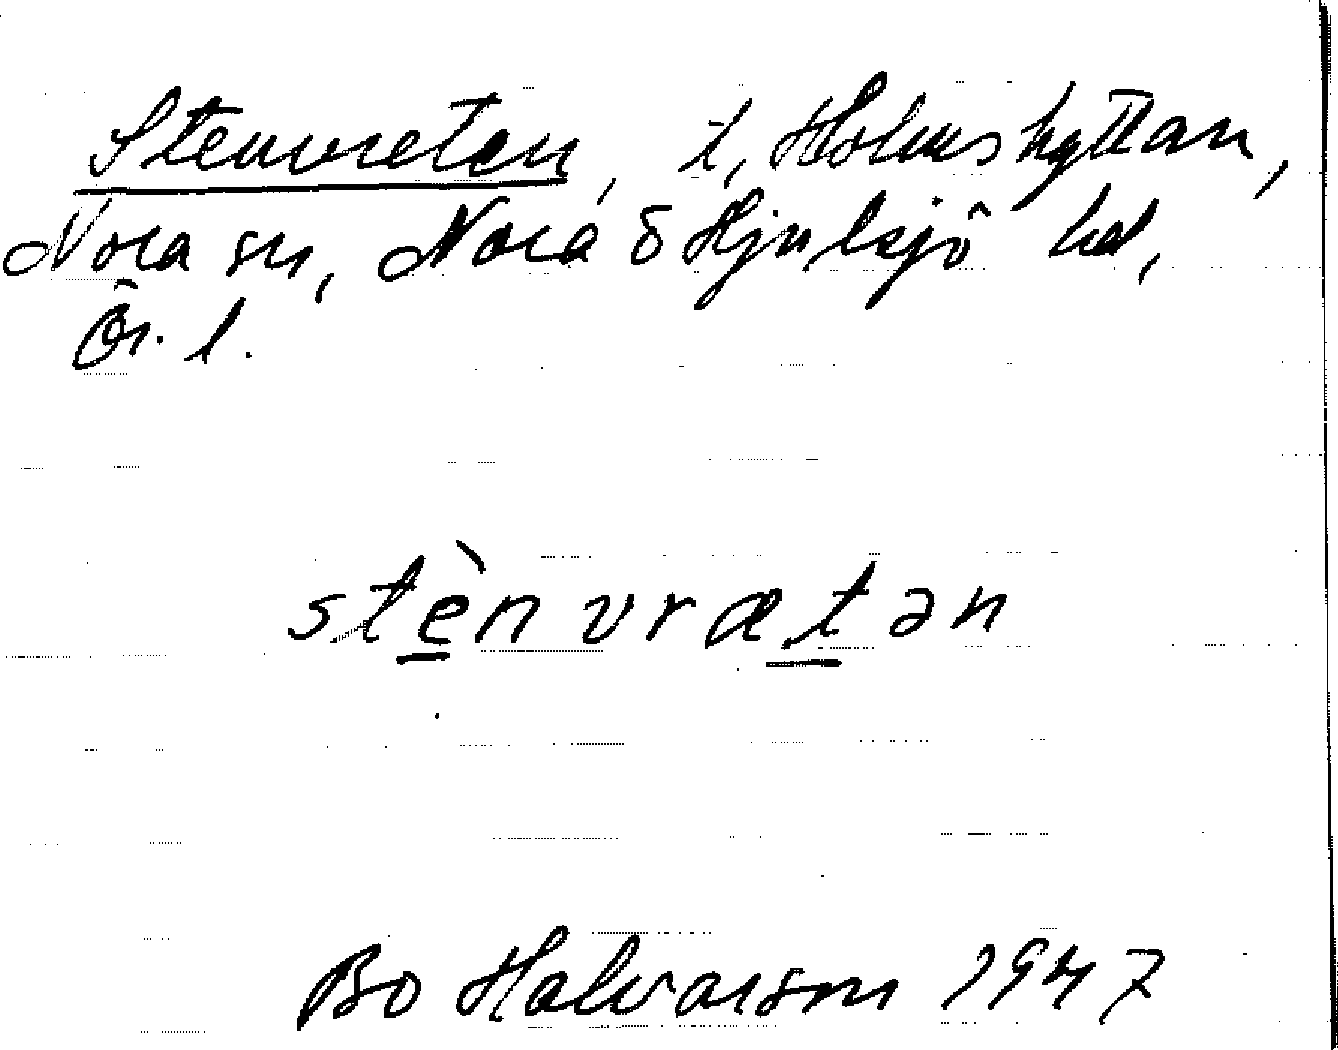 Stenvreten, t, Holmshyttan,
Nora sn, Nora o Hjulsjö hd,
Ör. l.
stènvrætən
Bo Halvarson 1947